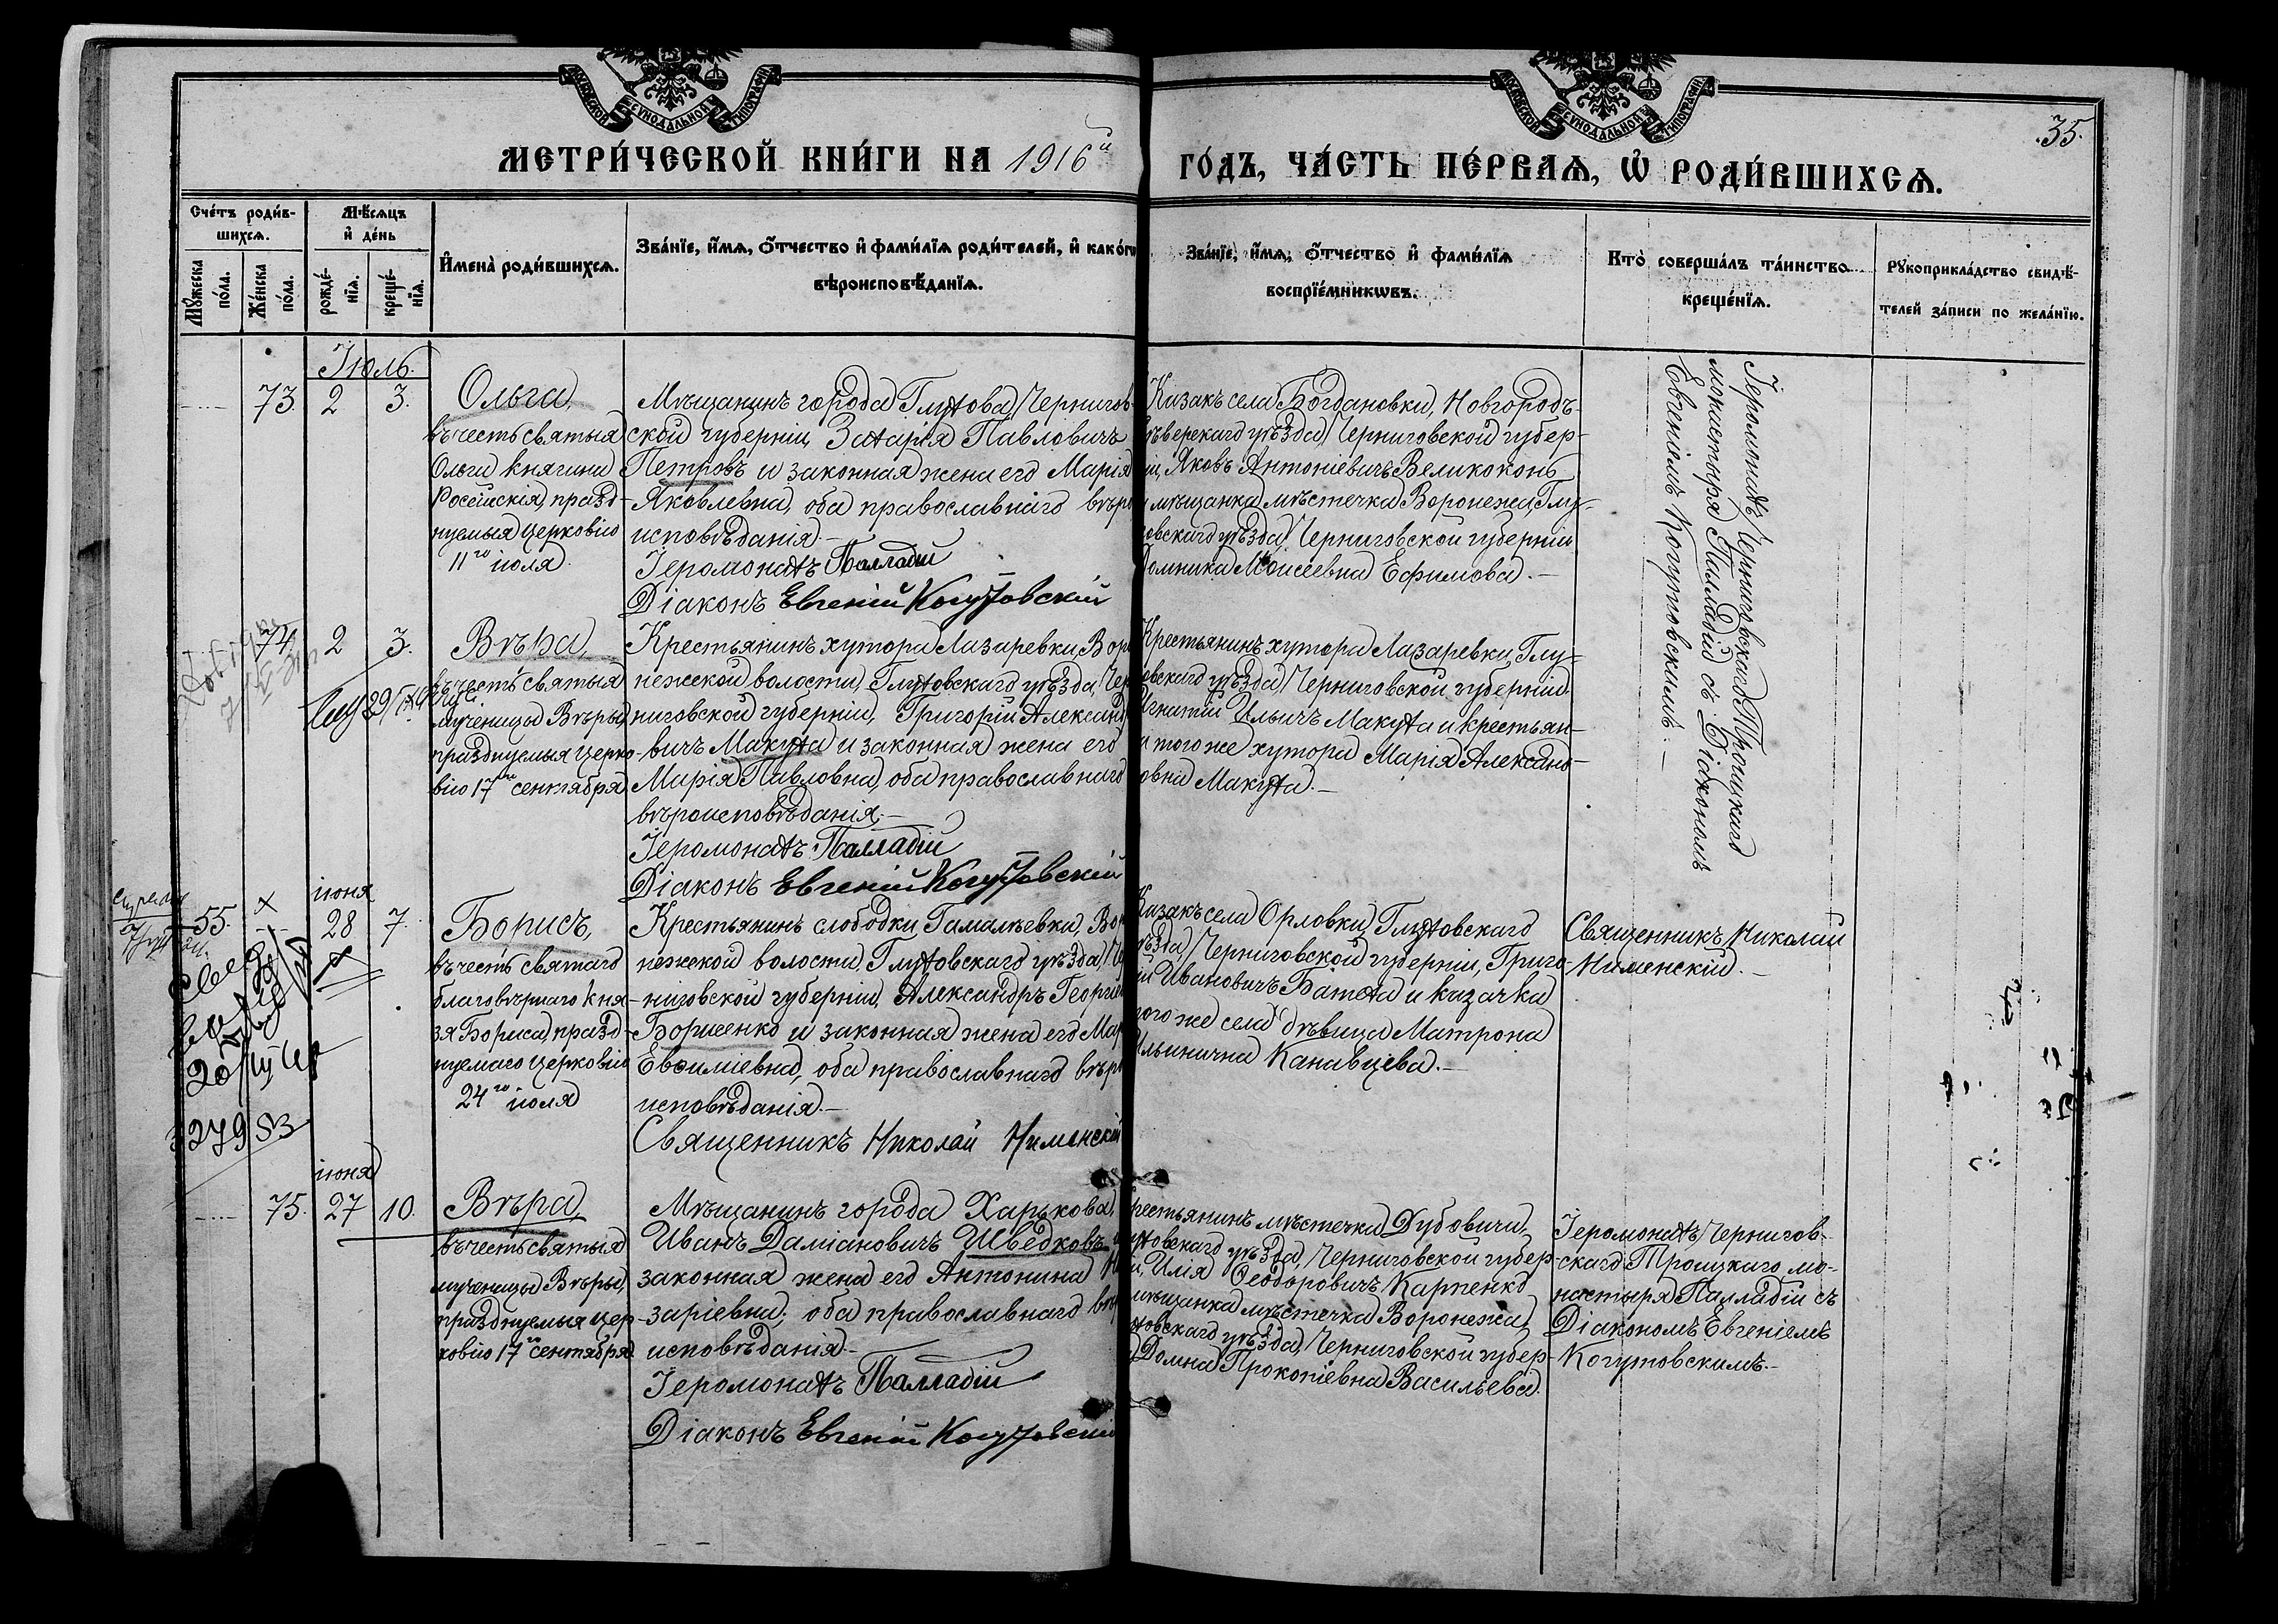 МЕТРИ́ЧЕСКОЙ КНИ́ГИ НА 1916й
ГО́ДЪ, ЧА́СТЬ ПЕ́РВАѦ, Ѡ҆ РОДИ́ВШИХСѦ.
35.
Сче́тъ роди́в-
шихсѧ.
Мѣ́сѧцъ
и҆ де́нь
Мꙋ́жеска
по́ла.
Же́нска
по́ла.
рожде́-
нїѧ.
креще́-
нїѧ.
И҆мена̀ роди́вшихсѧ.
Зва́нїе, и҆́мѧ, ѻ҆́тчество и҆ фами́лїѧ роди́телей, и҆ како́гѡ
вѣроисповѣ́данїѧ.
Зва́нїе, и҆́мѧ, ѻ҆́тчество и҆ фами́лїѧ
воспрїе́мникѡвъ.
Кто̀ соверша́лъ та́инство
креще́нїѧ.
Рꙋкоприкла́дство свидѣ́-
телей за́писи по жела́нїю.
Іюль.
73. 2 3.
Ольга,
въ честь святыя
Ольги княгини
Россійскія, празд-
нуемыя церковію
11го іюля.
Мѣщанинъ города Глухова, Чернигов-
ской губерніи, Захарія Павловичъ
Петровъ и законная жена его Марія
Яковлевна, оба православнаго вѣро
исповѣданія.
Іеромонахъ Палладій
Діаконъ Евгеній Когутовскій
Казакъ села Богдановки, Новгородъ-
сѣверскаго уѣзда, Черниговской губер-
ніи, Яковъ Антоніевичъ Великоконь
и мѣщанка мѣстечка Воронежа, Глу-
ховскаго уѣзда, Черниговской губерніи
Домника Моисеевна Ефимова.
Іеромонахъ Черниговскаго Троицкаго
монастыря Палладій съ Діакономъ
Евгеніемъ Когутовскимъ.
74. 2 3.
Вѣра,
въ честь святыя
мученицы Вѣры,
празднуемыя церко-
вію 17го сентября
Крестьянинъ хутора Лазаревки, Воро
нежской волости, Глуховскаго уѣзда, Чер
ниговской губерніи, Григорій Александ
вичъ Макуха и законная жена его
Марія Павловна, оба православнаго
вѣроисповѣданія.
Іеромонахъ Палладій
Діаконъ Евгеній Когутовскій
Крестьянинъ хутора Лазаревки, Глу-
ховскаго уѣзда, Черниговской губерніи
Игнатій Ильичъ Макуха и крестьян-
ка того же хутора Марія Александ-
ровна Макуха.
іюня
55. 28 7.
Борисъ,
въ честь святаго
благовѣрнаго кня-
зя Бориса, празд-
нуемаго церковію
24го іюля
Крестьянинъ слободки Гамалѣевки, Во
нежской волости, Глуховскаго уѣзда, Че
ниговской губерніи, Александръ Георгіе
Борисенко и законная жена его Мар
Евѳиміевна, оба православнаго вѣро
исповѣданія.
Священникъ Николай Нименскій
Казакъ села Орловки, Глуховскаго
уѣзда, Черниговской губерніи, Григо-
рій Ивановичъ Батеха и казачка
того же села дѣвица Матрона
Ильинична Канавцева.
Священникъ Николай
Нименскій.
279 83
іюня
75. 27 10.
Вѣра
въ честь святыя
мученицы Вѣры,
празднуемыя цер-
ковію 17го сентября
Мѣщанинъ города Харькова,
Иванъ Даміановичъ Шведковъ и
законная жена его Антонина На
заріевна, оба православнаго вѣр
исповѣданія.
Іеромонахъ Палладій
Діаконъ Евгеній Когутовскій
Крестьянинъ мѣстечка Дубовичи,
Глуховскаго уѣзда, Черниговской губер-
ніи, Илія Ѳеодоровичъ Карпенко
мѣщанка мѣстечка Воронежа,
Глуховскаго уѣзда, Черниговской губер-
Домна Прокопіевна Васильева.
Іеромонахъ Чернигов-
скаго Троицкаго мо-
настыря Палладій съ
Діакономъ Евгеніемъ
Когутовскимъ.